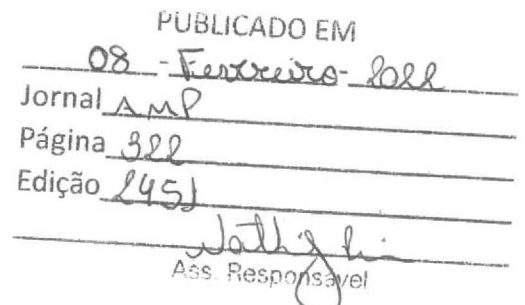 PUBLICADO EM
08 - Fevereiro - 2022
Jornal AMP
Página 322
Edição 2451
Ass. Responsável